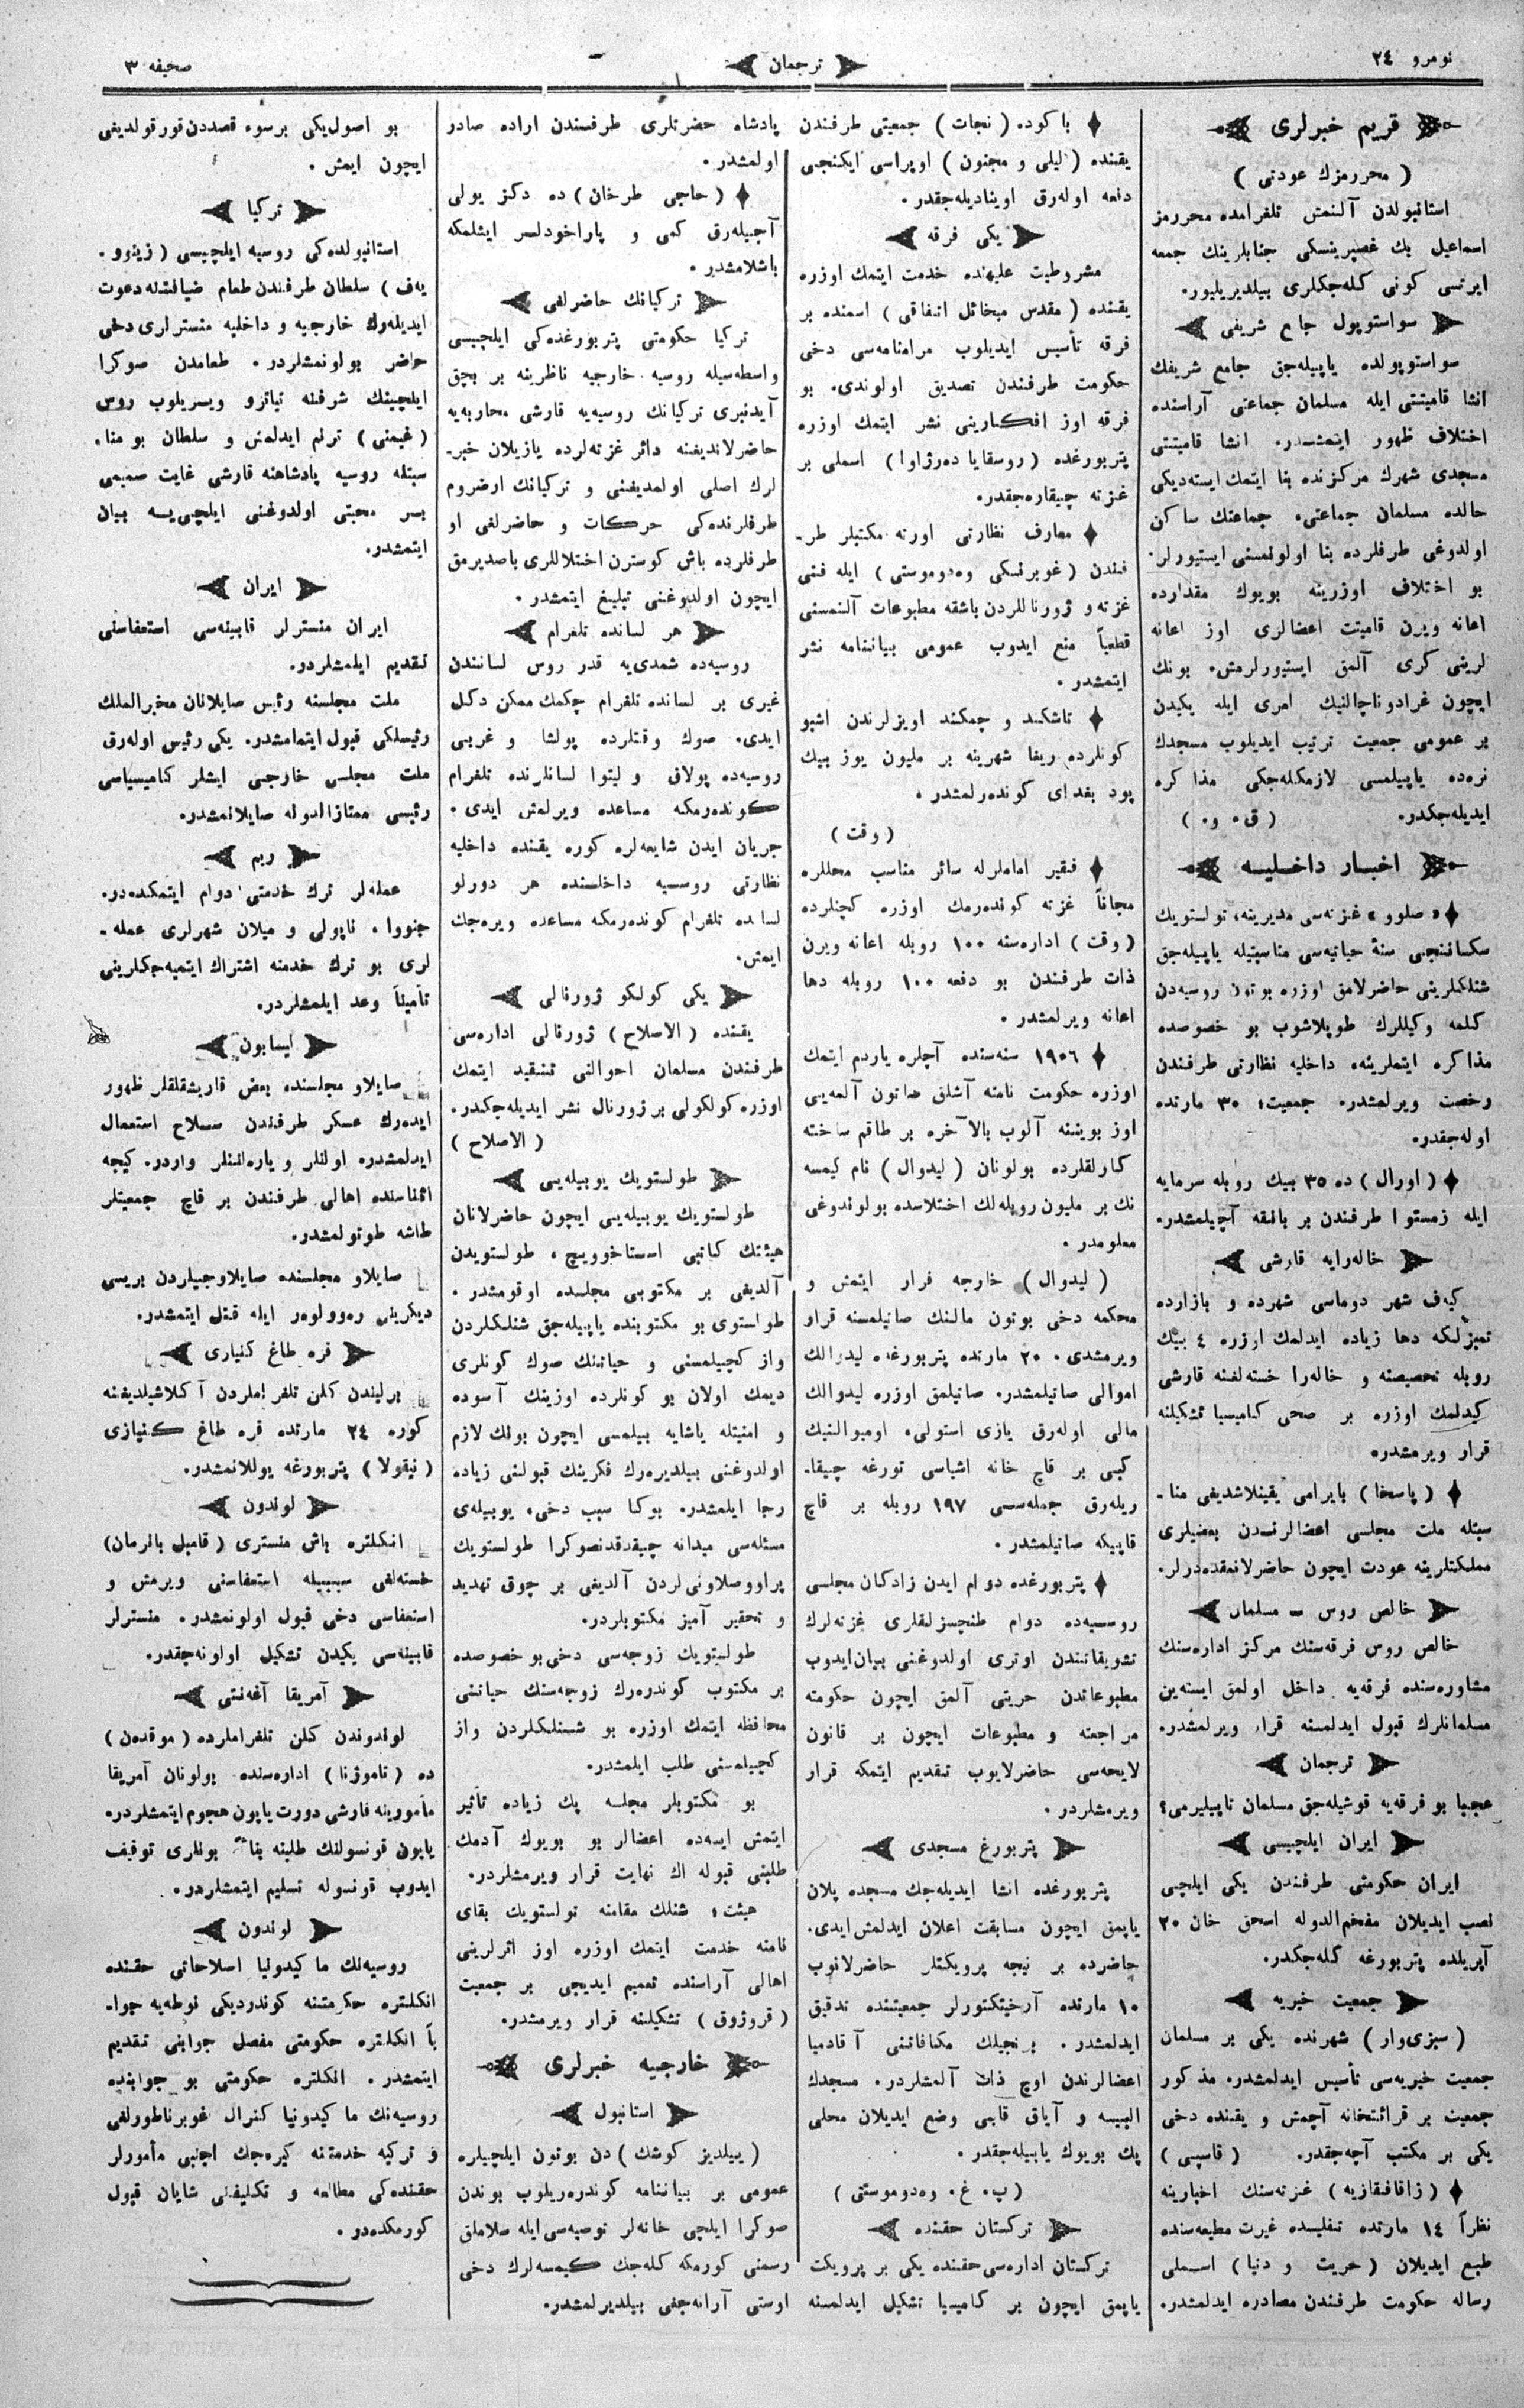 نومرو ٢٤
ترجمان
صحيفه ٣
قريم خبرلرى
( محررمزك عودتى )
استانبولدن آلنمش تلغرامده محررمز
اسماعيل بك غصپرينسكى جنابلرينك جمعه
ايرتسى كونى كله‌جكلرى بيلديريليور.
سواستوپول جامع شريفى
سواستوپولده ياپيله‌جق جامع شريفك
انشا قاميتتى ايله مسلمان جماعتى آراسنده
اختلاف ظهور ايتمشدر. انشا قاميتتى
مسجدى شهرك مركزنده بنا ايتمك ايسته‌ديكى
حالده مسلمان جماعتى، جماعتك ساكن
اولدوغى طرفلرده بنا اولونمسنى ايستيورلر.
بو اختلاف اوزرينه بويوك مقدارده
اعانه ويرن قاميتت اعضالرى اوز اعانه
لرينى كرى آلمق ايستيورلرمش. بونك
ايچون غرادوناچالنيك امرى ايله يكيدن
بر عمومى جمعيت ترتيب ايديلوب مسجدك
نره‌ده ياپيلمسى لازمكله‌جكى مذاكره
ايديله‌جكدر. ( ق. و. )
اخبار داخليه
« صلوو » غزته‌سى مديرينه، تولستويك
سكساننجى سنهٔ حياتيه‌سى مناسبتيله ياپيله‌جق
شنلكلرينى حاضرلامق اوزره بوتون روسيه‌دن
كلمه وكيللرك طوپلاشوب بو خصوصده
مذاكره ايتملرينه، داخليه نظارتى طرفندن
رخصت ويرلمشدر. جمعيت؛ ٣٠ مارتده
اوله‌جقدر.
( اورال ) ده ٣٥ بيك روبله سرمايه
ايله زمستوا طرفندن بر بانقه آچيلمشدر.
خاله‌رايه قارشى
كيه‌ف شهر دوماسى شهرده و بازارده
تميزلكه دها زياده ايدلمك اوزره ٤ بيك
روبله تخصيصنه و خاله‌را خسته‌لغنه قارشى
كيدلمك اوزره بر صحى كاميسيا تشكيلنه
قرار ويرمشدر.
( پاسخا ) بايرامى يقينلاشديغى منا-
سبتله ملت مجلسى اعضالرندن بعضيلرى
مملكتلرينه عودت ايچون حاضرلانمقده‌درلر.
خالص روس - مسلمان
خالص روس فرقه‌سنك مركز اداره‌سنك
مشاوره‌سنده فرقه‌يه داخل اولمق ايسته‌ين
مسلمانلرك قبول ايدلمسنه قرار ويرلمشدر.
ترجمان
عجبا بو فرقه‌يه قوشيله‌جق مسلمان تاپيليرمى؟
ايران ايلچيسى
ايران حكومتى طرفندن يكى ايلچى
نصب ايديلان مفخم‌الدوله اسحق خان ٢٠
آپريلده پتربورغه كله‌جكدر.
جمعيت خيريه
( سبزى‌وار ) شهرنده يكى بر مسلمان
جمعيت خيريه‌سى تأسيس ايدلمشدر. مذكور
جمعيت بر قرائتخانه آچمش و يقنده دخى
يكى بر مكتب آچه‌جقدر. ( قاسپى )
( زاقافقازيه ) غزته‌سنك اخبارينه
نظراً ١٤ مارتده تفليسده غيرت مطبعه‌سنده
طبع ايديلان ( حريت و دنيا ) اسملى
رساله حكومت طرفندن مصادره ايدلمشدر.
باكوده ( نجات ) جمعيتى طرفندن
يقنده ( ليلى و مجنون ) اوپراسى ايكنجى
دفعه اوله‌رق اويناديله‌جقدر.
يكى فرقه
مشروطيت عليهنده خدمت ايتمك اوزره
يقنده ( مقدس ميخائل اتفاقى ) اسمنده بر
فرقه تأسيس ايديلوب مرامنامه‌سى دخى
حكومت طرفندن تصديق اولوندى. بو
فرقه اوز افكارينى نشر ايتمك اوزره
پتربورغده ( روسقايا ده‌رژاوا ) اسملى بر
غزته چيقاره‌جقدر.
معارف نظارتى اورته مكتبلر طر-
فندن ( غوبرنسكى وه‌دوموستى ) ايله فنى
غزته و ژورناللردن باشقه مطبوعات آلنمسنى
قطعياً منع ايدوب عمومى بياننامه نشر
ايتمشدر.
تاشكند و چمكند اويزلرندن اشبو
كونلرده ريغا شهرينه بر مليون يوز بيك
پود بغداى كونده‌رلمشدر.
( وقت )
فقير اماملرله سائر مناسب محللره
مجاناً غزته كونده‌رمك اوزره كچنلرده
( وقت ) اداره‌سنه ١٠٠ روبله اعانه ويرن
ذات طرفندن بو دفعه ١٠٠ روبله دها
اعانه ويرلمشدر.
١٩٠٦ سنه‌سنده آچلره ياردم ايتمك
اوزره حكومت نامنه آشلق صاتون آلمه‌يى
اوز بويننه آلوب بالآخره بر طاقم ساخته
كارلقلرده بولونان ( ليدوال ) نام كيمسه
نك بر مليون روبله‌لك اختلاسده بولوندوغى
معلومدر.
( ليدوال ) خارجه فرار ايتمش و
محكمه دخى بوتون مالنك صاتيلمسنه قرار
ويرمشدى. ٢٠ مارتده پتربورغده ليدوالك
اموالى صاتيلمشدر. صاتيلمق اوزره ليدوالك
مالى اوله‌رق يازى استولى، اوميوالنيك
كبى بر قاچ خانه اشياسى تورغه چيقا-
ريله‌رق جمله‌سى ١٩٧ روبله بر قاچ
قاپيكه صاتيلمشدر.
پتربورغده دوام ايدن زادكان مجلسى
روسيه‌ده دوام طنچسزلقلرى غزته‌لرك
تشويقاتندن اوترى اولدوغنى بيان‌ايدوب
مطبوعاتدن حريتى آلمق ايچون حكومته
مراجعته و مطبوعات ايچون بر قانون
لايحه‌سى حاضرلايوب تقديم ايتمكه قرار
ويرمشلردر.
پتربورغ مسجدى
پتربورغده انشا ايديله‌جك مسجده پلان
ياپمق ايچون مسابقت اعلان ايدلمش‌ايدى.
حاضرده بر نيجه پرويكتلر حاضرلانوب
١٠ مارتده آرخيتكتورلر جمعيتنده تدقيق
ايدلمشدر. برنجيلك مكافاتنى آقادميا
اعضالرندن اوچ ذات آلمشلردر. مسجدك
البيسه و آياق قابى وضع ايديلان محلى
پك بويوك ياپيله‌جقدر.
( پ. غ. وه‌دوموستى )
تركستان حقنده
تركستان اداره‌سى حقنده يكى بر پرويكت
ياپمق ايچون بر كاميسيا تشكيل ايدلمسنه
پادشاه حضرتلرى طرفندن اراده صادر
اولمشدر.
( حاجى طرخان ) ده دكز يولى
آچيله‌رق كمى و پاراخودلر ايشلمكه
باشلامشدر.
تركيانك حاضرلغى
تركيا حكومتى پتربورغده‌كى ايلچيسى
واسطه‌سيله روسيه خارجيه ناظرينه بر بچق
آيدنبرى تركيانك روسيه‌يه قارشى محاربه‌يه
حاضرلانديغنه دائر غزته‌لرده يازيلان خبر-
لرك اصلى اولمديغنى و تركيانك ارضروم
طرفلرنده‌كى حركات و حاضرلغى او
طرفلرده باش كوسترن اختلاللرى باصديرمق
ايچون اولدوغنى تبليغ ايتمشدر.
هر لسانده تلغرام
روسيه‌ده شمدى‌يه قدر روس لسانندن
غيرى بر لسانده تلغرام چكمك ممكن دكل
ايدى. صوك وقتلرده پولشا و غربى
روسيه‌ده پولاق و ليتوا لسانلرنده تلغرام
كونده‌رمكه مساعده ويرلمش ايدى.
جريان ايدن شايعه‌لره كوره يقنده داخليه
نظارتى روسيه داخلنده هر دورلو
لسانده تلغرام كونده‌رمكه مساعده ويره‌جك
ايمش.
يكى كولكو ژورنالى
يقنده ( الاصلاح ) ژورنالى اداره‌سى
طرفندن مسلمان احوالنى تنقيد ايتمك
اوزره كولكولى بر ژورنال نشر ايديله‌جكدر.
( الاصلاح )
طولستويك يوبيله‌يى
طولستويك يوبيله‌يى ايچون حاضرلانان
هيئتك كاتبى استاخوويچ، طولستويدن
آلديغى بر مكتوبى مجلسده اوقومشدر.
طولستوى بو مكتوبنده ياپيله‌جق شنلكلردن
واز كچيلمسنى و حياتنك صوك كونلرى
ديمك اولان بو كونلرده اوزينك آسوده
و امنيتله ياشايه بيلمسى ايچون بونك لازم
اولدوغنى بيلديره‌رك فكرينك قبولنى زياده
رجا ايلمشدر. بوكا سبب دخى، يوبيله‌ى
مسئله‌سى ميدانه چيقدقدنصوكرا طولستويك
پراووصلاونى‌لردن آلديغى بر چوق تهديد
و تحقير آميز مكتوبلردر.
طولستويك زوجه‌سى دخى بو خصوصده
بر مكتوب كوندره‌رك زوجه‌سنك حياتنى
محافظه ايتمك اوزره بو شنلكلردن واز
كچيلمه‌سنى طلب ايلمشدر.
بو مكتوبلر مجلسه پك زياده تأثير
ايتمش ايسه‌ده اعضالر بو بويوك آدمك
طلبنى قبوله اك نهايت قرار ويرمشلردر.
هيئت؛ شنلك مقامنه تولستويك بقاى
نامنه خدمت ايتمك اوزره اوز اثرلرينى
اهالى آراسنده تعميم ايديجى بر جمعيت
( قروژوق ) تشكيلنه قرار ويرمشدر.
خارجيه خبرلرى
استانبول
( ييلديز كوشك ) دن بوتون ايلچيلره
عمومى بر بياننامه كونده‌ريلوب بوندن
صوكرا ايلچى خانه‌لر توصيه‌سى ايله سلاملق
رسمنى كورمكه كله‌جك كيمسه‌لرك دخى
اوستى آرانه‌جغى بيلديرلمشدر.
بو اصول‌يكى برسوء قصددن‌قورقولديغى
ايچون ايمش.
تركيا
استانبولده‌كى روسيه ايلچيسى ( زينوو.
يه‌ف ) سلطان طرفندن طعام ضيافتنه دعوت
ايديله‌رك خارجيه و داخليه منسترلرى دخى
حاضر بولونمشلردر. طعامدن صوكرا
ايلچينك شرفنه تياترو ويريلوب روس
( غيمنى ) ترنم ايدلمش و سلطان بو منا.
سبتله روسيه پادشاهنه قارشى غايت صميمى
بر محبتى اولدوغنى ايلچى‌يه بيان
ايتمشدر.
ايران
ايران منسترلر قابينه‌سى استعفاسنى
تقديم ايلمشلردر.
ملت مجلسنه رئيس صايلانان مخبرالملك
رئيسلكى قبول ايتمامشدر. يكى رئيس اوله‌رق
ملت مجلسى خارجى ايشلر كاميسياسى
رئيسى ممتازالدوله صايلانمشدر.
ريم
عمله‌لر ترك خدمتى دوام ايتمكده‌در.
جنووا، ناپولى و ميلان شهرلرى عمله-
لرى بو ترك خدمته اشتراك ايتميه‌جكلرينى
تأميناً وعد ايلمشلردر.
ليسابون
صايلاو مجلسنده بعض قاريشقلقلر ظهور
ايده‌رك عسكر طرفندن سلاح استعمال
ايدلمشدر. اولنلر و ياره‌لننلر واردر. كيجه
اثناسنده اهالى طرفندن بر قاچ جمعيتلر
طاشه طوتولمشدر.
صايلاو مجلسنده صايلاوجيلردن بريسى
ديكرينى ره‌وولوه‌ر ايله قتل ايتمشدر.
قره طاغ كنيازى
برليندن كلن تلغراملردن آكلاشيلديغنه
كوره ٢٤ مارتده قره طاغ كنيازى
( نيقولا ) پتربورغه يوللانمشدر.
لوندون
انكلتره باش منسترى ( قامبل بانرمان )
خسته‌لغى سببيله استعفاسنى ويرمش و
استعفاسى دخى قبول اولونمشدر. منسترلر
قابينه‌سى يكيدن تشكيل اولونه‌جقدر.
آمريقا آغه‌نتى
لوندوندن كلن تلغراملرده ( موقده‌ن )
ده ( تاموژنا ) اداره‌سنده بولونان آمريقا
مأمورينه قارشى دورت ياپون هجوم ايتمشلردر.
ياپون قونسولنك طلبنه بناءً بونلرى توقيف
ايدوب قونسوله تسليم ايتمشلردر.
لوندون
روسيه‌نك ماكيدونيا اصلاحاتى حقنده
انكلتره حكومتنه كوندرديكى نوطه‌يه جوا-
باً انكلتره حكومتى مفصل جوابنى تقديم
ايتمشدر. انكلتره حكومتى بو جوابنده
روسيه‌نك ماكيدونيا كنرال غوبرناطورلغى
و تركيه خدمتنه كيره‌جك اجنبى مأمورلر
حقنده‌كى مطالعه و تكليفنى شايان قبول
كورمكده‌در.